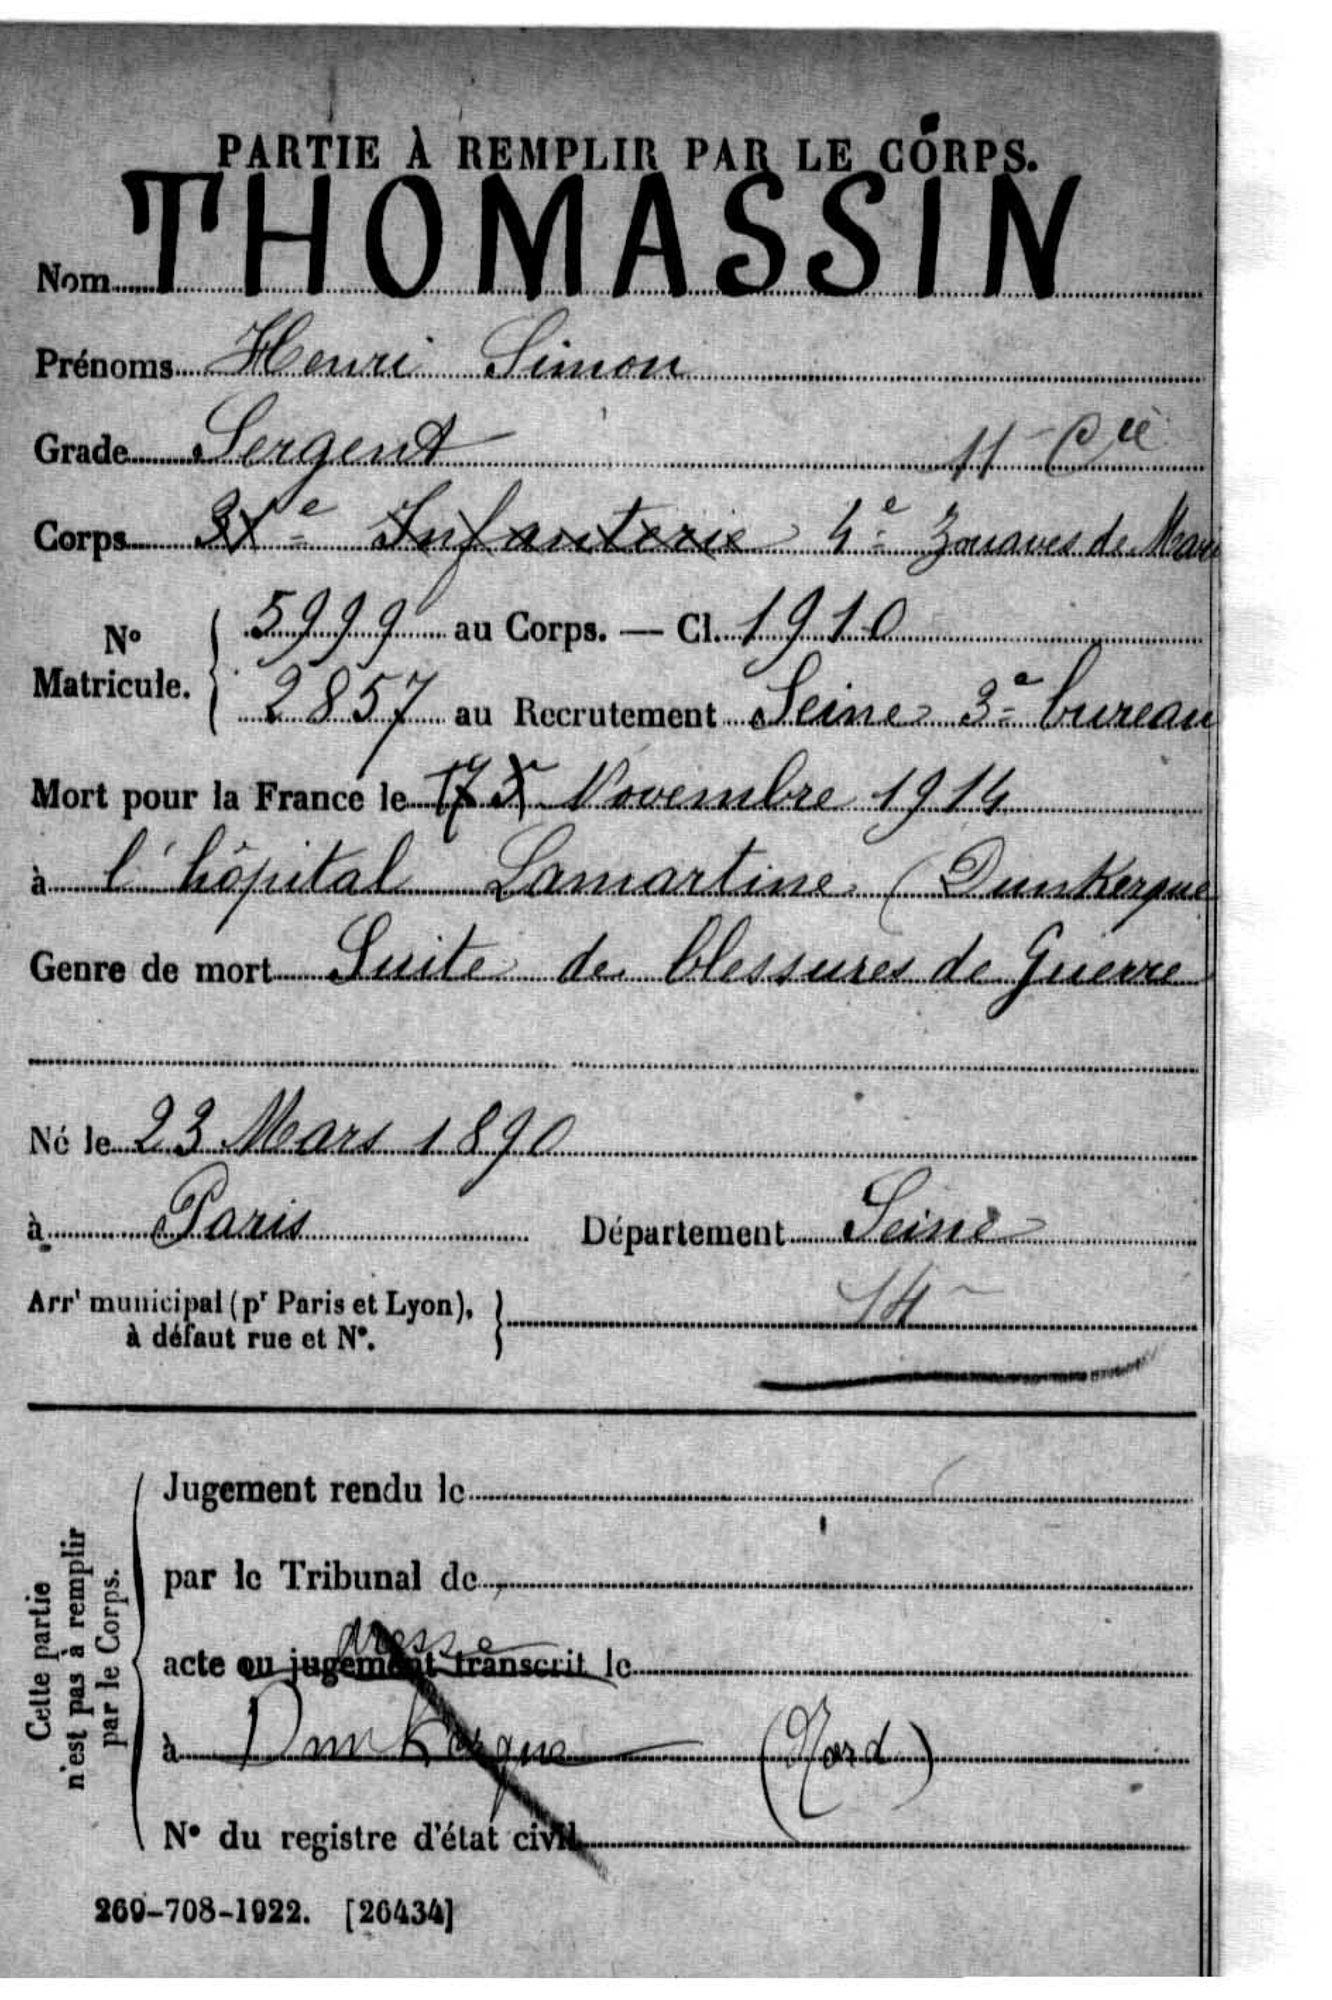 PARTIE À REMPLIR PAR LE CORPS.
Nom THOMASSIN
Prénoms Henri Simon
Grade Sergent 11e Cie
Corps Infanterie 4e Zouaves de Mar
No Matricule. { 5999 au Corps. — Cl. 1910
2857 au Recrutement Seine 3e bureau
Mort pour la France le 17 Novembre 1914
à l'hôpital Lamartine (Dunkerque
Genre de mort Suite de blessures de Guerre
Né le 23 Mars 1890
à Paris Département Seine
Arrt municipal (pr Paris et Lyon), } 14
à défaut rue et N°.
Cette partie
n'est pas à remplir
par le Corps.
Jugement rendu le
par le Tribunal de
dressé
acte ou jugement transcrit le
à Dunkerque (Nord)
N° du registre d'état civil
260-708-1922. [26434]